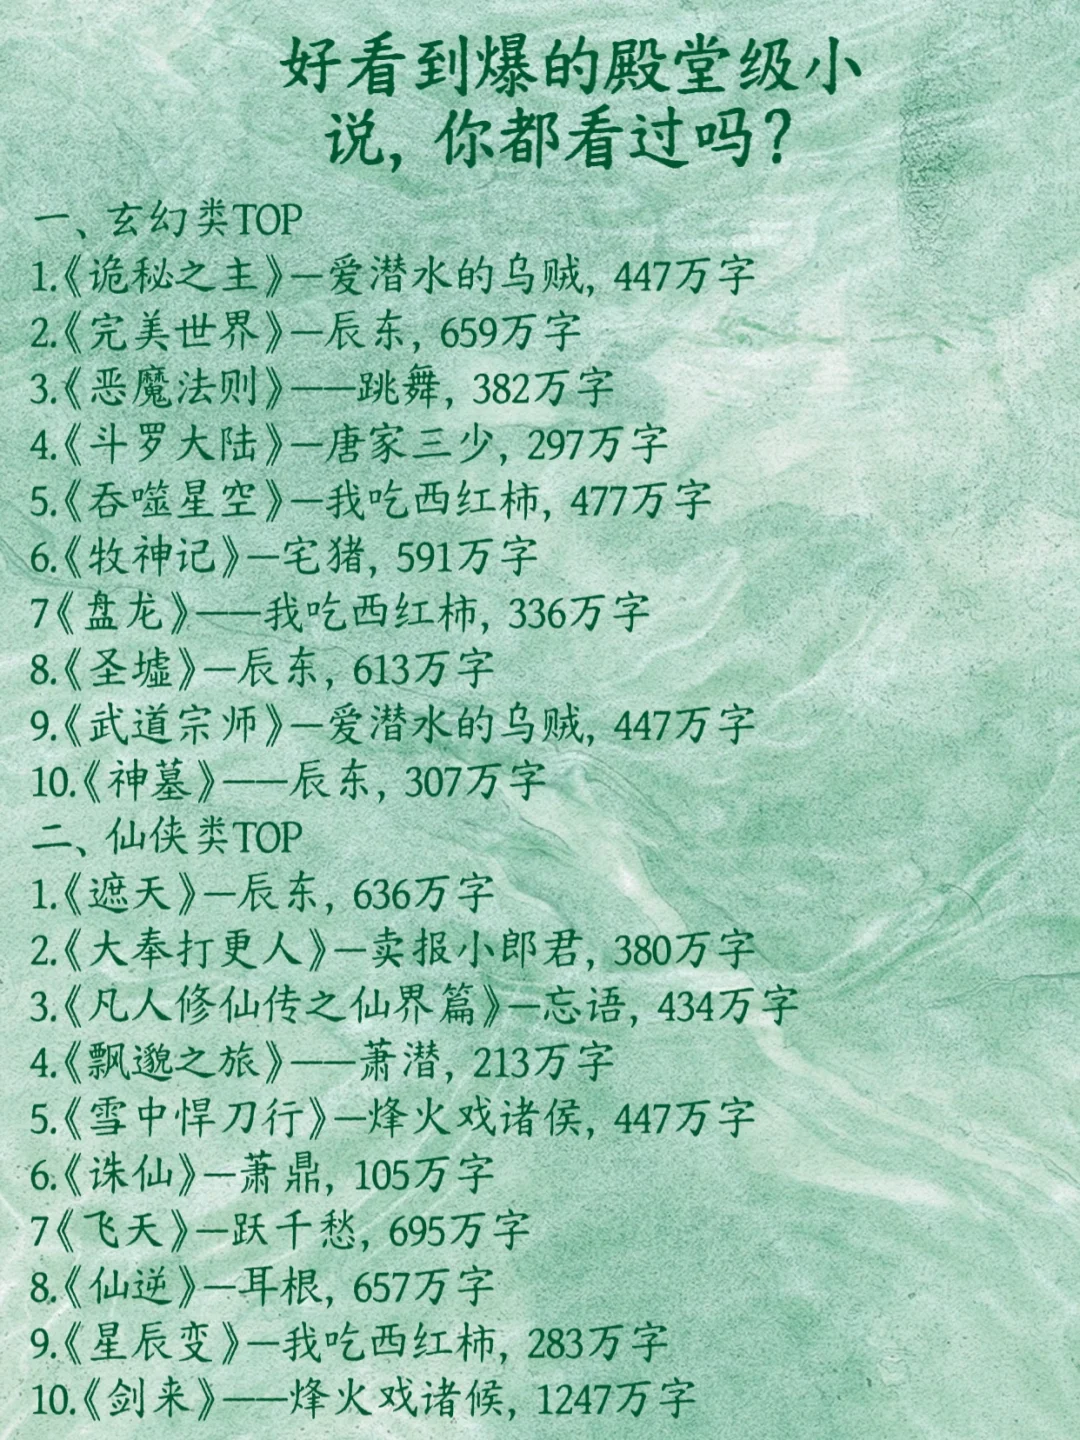 好看到爆的殿堂级小
说，你都看过吗？
一、玄幻类TOP
1.《诡秘之主》—爱潜水的乌贼，447万字
2.《完美世界》—辰东，659万字
3.《恶魔法则》——跳舞，382万字
4.《斗罗大陆》—唐家三少，297万字
5.《吞噬星空》—我吃西红柿，477万字
6.《牧神记》—宅猪，591万字
7《盘龙》——我吃西红柿，336万字
8.《圣墟》—辰东，613万字
9.《武道宗师》—爱潜水的乌贼，447万字
10.《神墓》——辰东，307万字
二、仙侠类TOP
1.《遮天》—辰东，636万字
2.《大奉打更人》—卖报小郎君，380万字
3.《凡人修仙传之仙界篇》—忘语，434万字
4.《飘邈之旅》——萧潜，213万字
5.《雪中悍刀行》—烽火戏诸侯，447万字
6.《诛仙》—萧鼎，105万字
7《飞天》—跃千愁，695万字
8.《仙逆》—耳根，657万字
9.《星辰变》—我吃西红柿，283万字
10.《剑来》——烽火戏诸候，1247万字